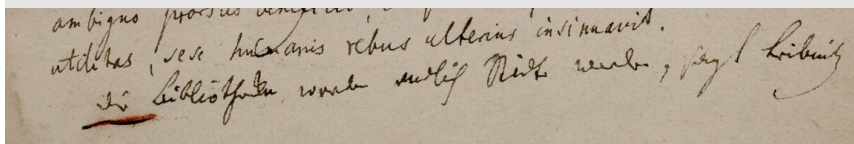 ambiguo prorsus beneficio,
utilitas, sese humanis rebus ulterius insinuavit.
die Bibliotheken werden endlich Städte werden, sagt Leibnitz